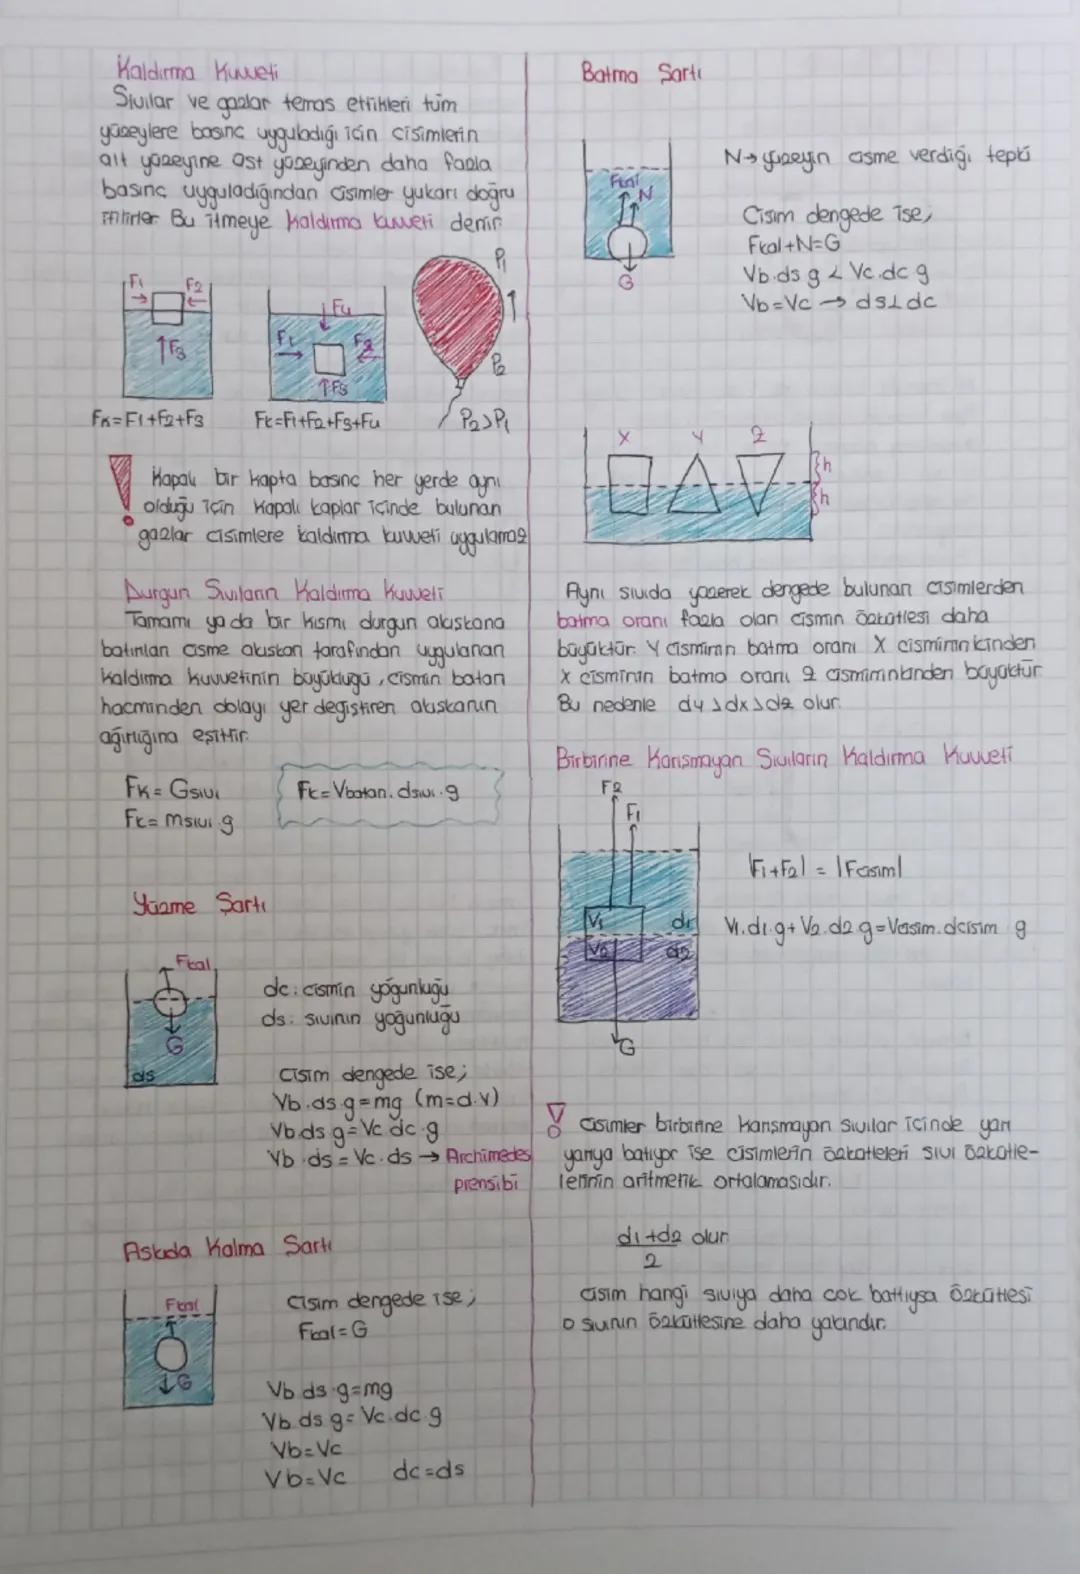 Kaldırma Kuvveti
Sıvılar ve gazlar temas ettikleri tüm
yüzeylere basınç uyguladığı için cisimlerin
alt yüzeyine üst yüzeyinden daha fazla
basınç uyguladığından cisimler yukarı doğru
itilirler Bu itmeye kaldırma kuvveti denir.
F1 F2
F3
FK=F1+F2+F3
F4
F1 F2
F3
Fk=F1+F2+F3+F4
P1
P2
P2>P1
Kapalı bir kapta basınç her yerde aynı
olduğu için kapalı kaplar içinde bulunan
gazlar cisimlere kaldırma kuvveti uygulamaz
Durgun Sıvıların Kaldırma Kuvveti
Tamamı ya da bir kısmı durgun akışkana
batırılan cisme akışkan tarafından uygulanan
kaldırma kuvvetinin büyüklüğü, cismin batan
hacminden dolayı yer değiştiren akışkanın
ağırlığına eşittir.
FK = Gsıvı
Fk = msıvı.g
Fk=Vbatan.dsıvı.g
Yüzme Şartı
Fkal
G
ds
dc: cismin yoğunluğu
ds: sıvının yoğunluğu
Cisim dengede ise;
Vb.ds.g=mg (m=d.v)
Vb.ds g=Vc dc.g
Vb.ds=Vc.ds → Archimedes
prensibi
Askıda Kalma Şartı
Fkal
G
Cisim dengede ise;
Fkal=G
Vb ds.g=mg
Vb ds g= Vc.dc.g
Vb=Vc
Vb=Vc dc=ds
Batma Şartı
Fkal
N
G
N→yüzeyin cisme verdiği tepki
Cisim dengede ise;
Fkal+N=G
Vb.ds g < Vc.dc g
Vb=Vc → ds<dc
X Y Z
h
h
Aynı sıvıda yüzerek dengede bulunan cisimlerden
batma oranı fazla olan cismin özkütlesi daha
büyüktür. Y cisminin batma oranı X cismininkinden
X cisminin batma oranı Z cismininkinden büyüktür
Bu nedenle dy>dx>dz olur.
Birbirine Karışmayan Sıvıların Kaldırma Kuvveti
F2
F1
V1 d1
V2 d2
G
|F1+F2| = |Fcisim|
V1.d1.g+V2.d2.g=Vcisim.dcisim g
Cisimler birbirine karışmayan sıvılar içinde yarı
yarıya batıyor ise cisimlerin özkütleleri sıvı özkütle-
lerinin aritmetik ortalamasıdır.
d1+d2 olur.
2
Cisim hangi sıvıya daha çok battıysa özkütlesi
o sıvının özkütlesine daha yakındır.